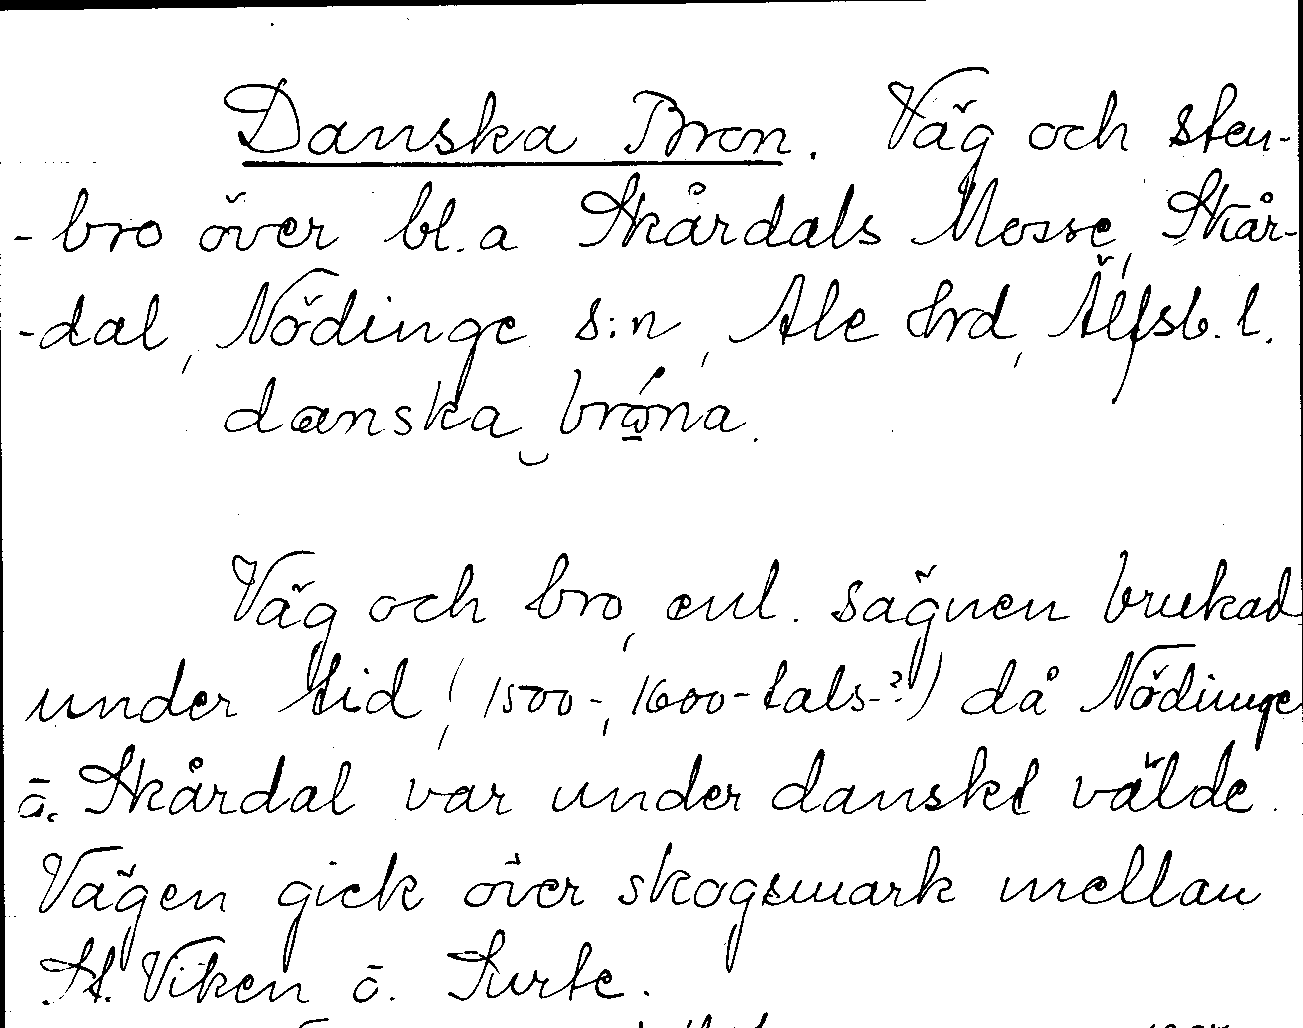 Danska Bron. Väg och sten-
-bro över bl.a Skårdals Mosse, Skår-
-dal, Nödinge s:n, Ale hrd, Älfsb. l.
danska
Väg och bro, enl. sägnen brukad
under tid (1500-, 1600-tals-?) då Nödinge
o. Skårdal var under danskt välde.
Vägen gick över skogsmark mellan
St. Viken o. Surte.